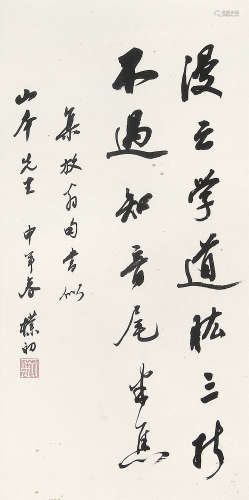 漫云学道肱三折
不过知音尾半焦
集放翁句书似
山本先生 甲申春 朴初